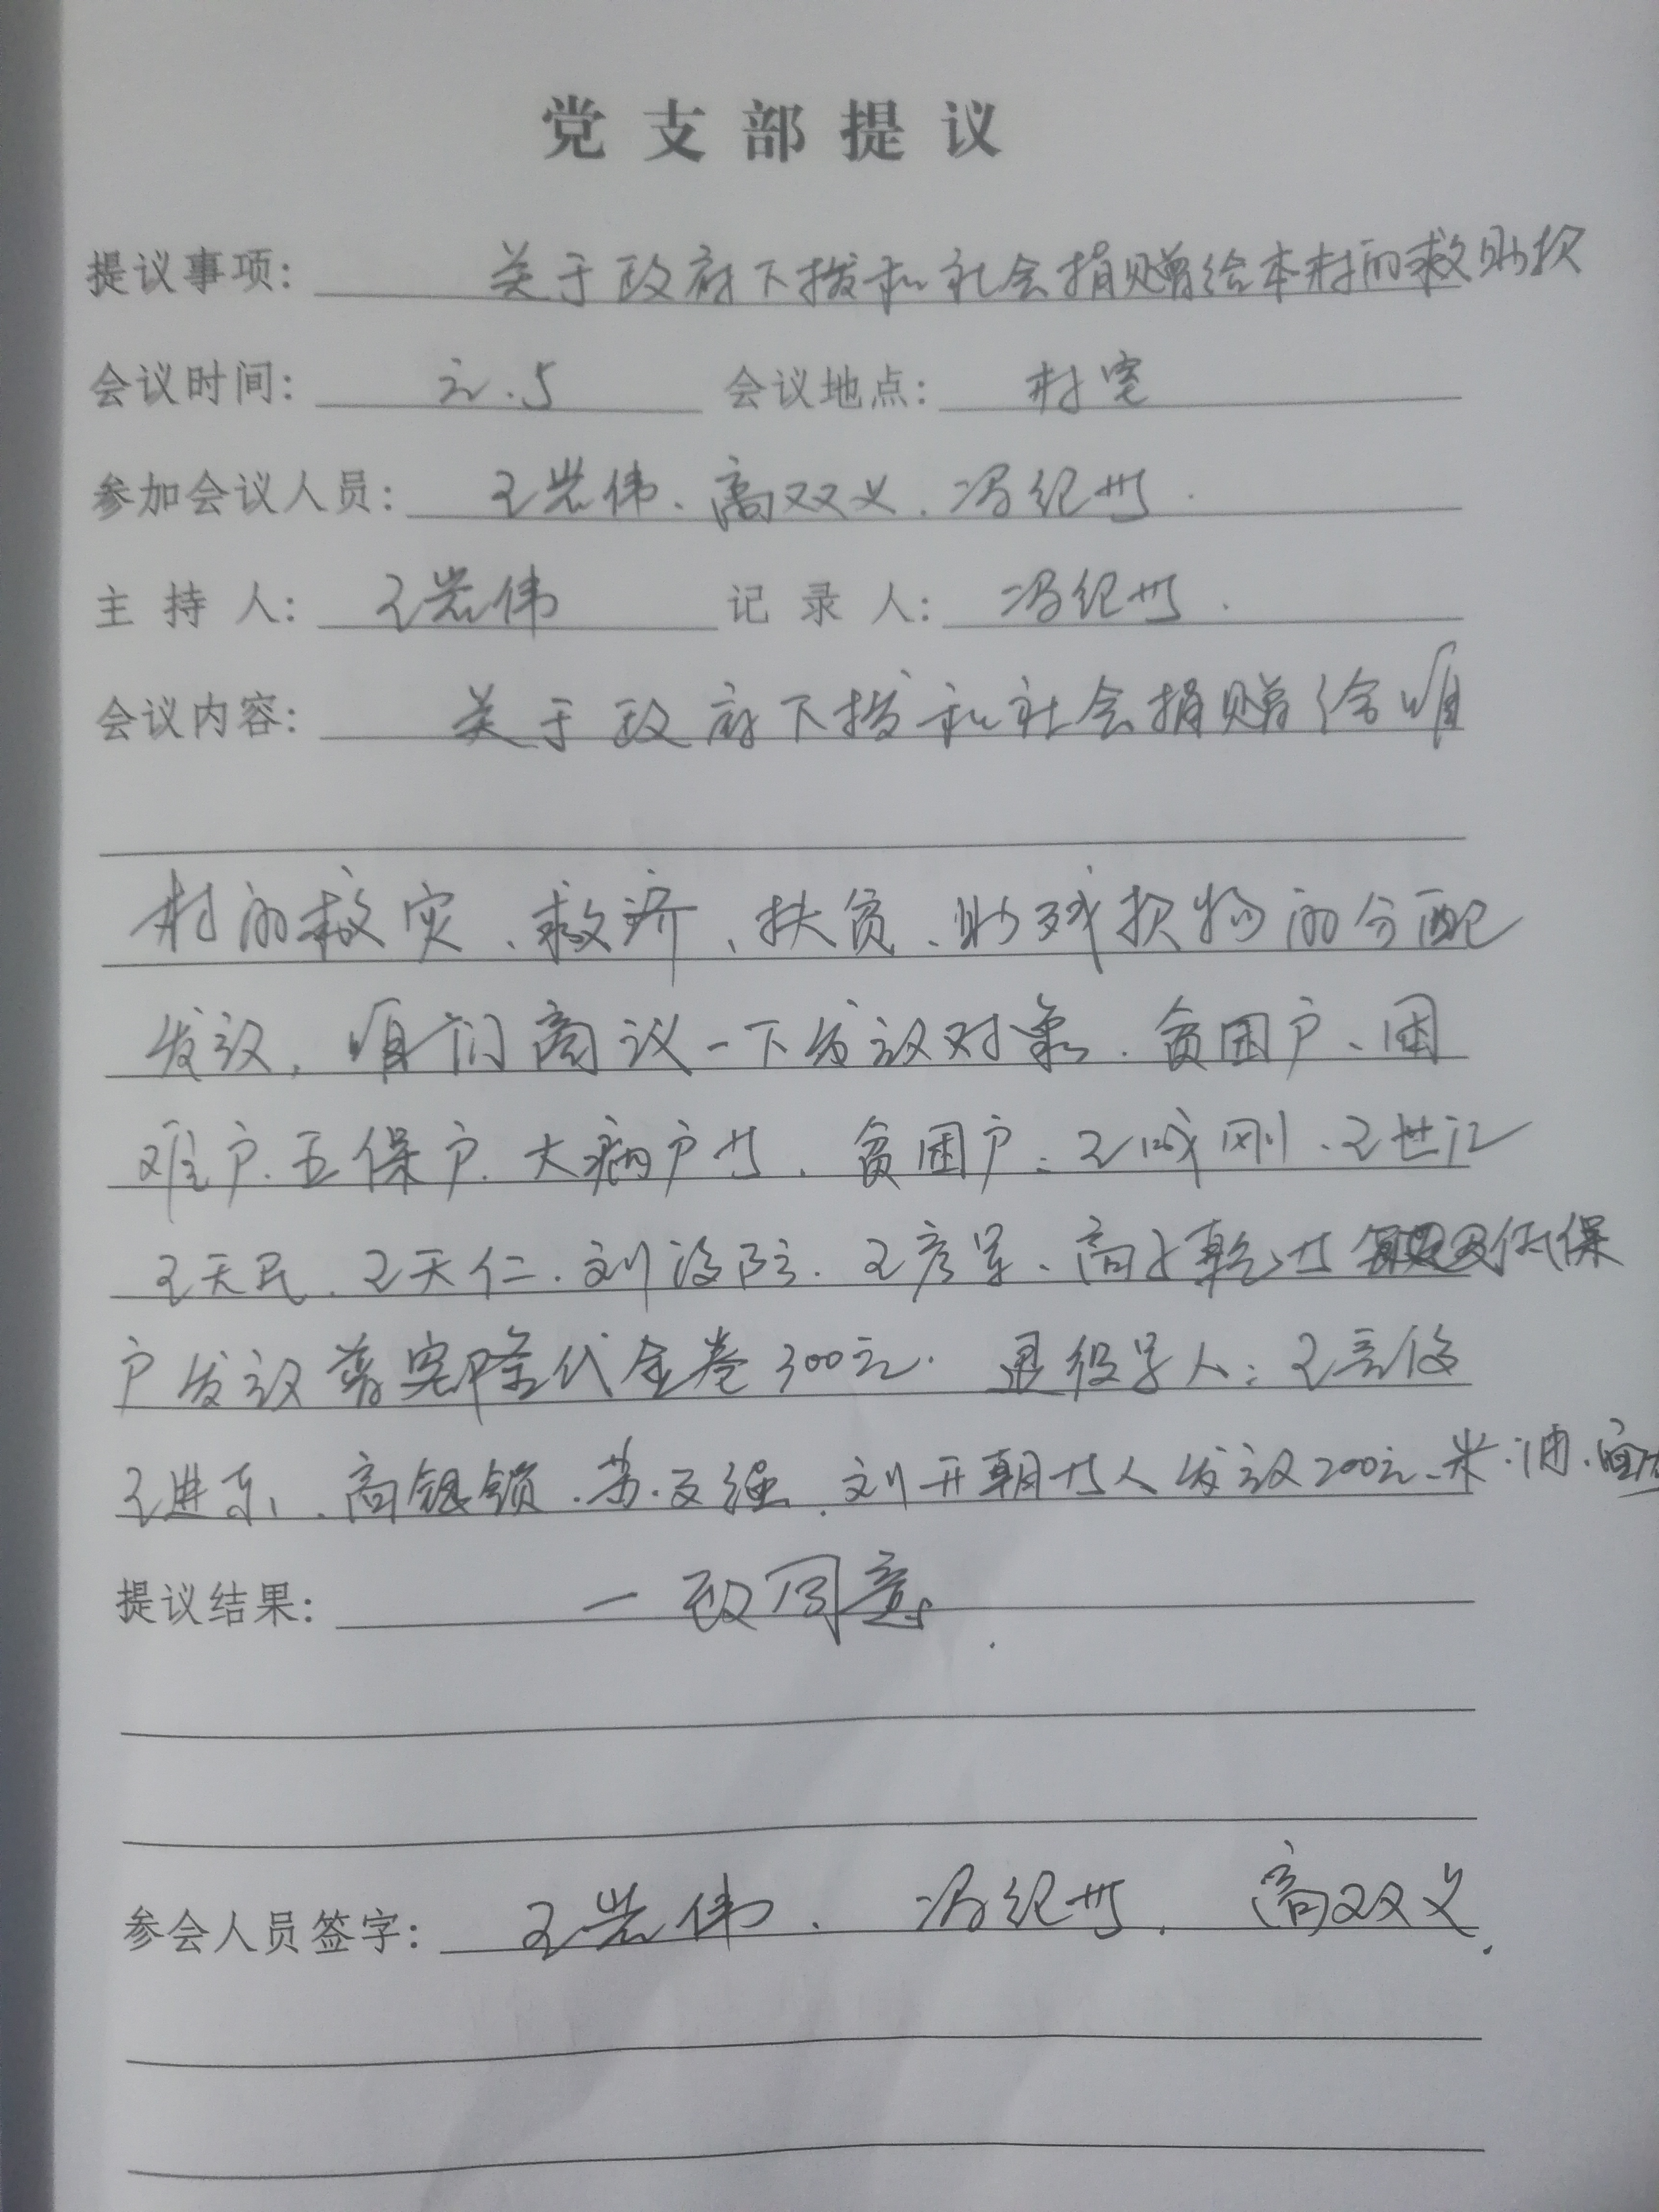 党支部提议
提议事项: 关于政府下拨和社会捐赠给本村的救助款
会议时间: 元.5 会议地点: 村室
参加会议人员: 王岩伟、高双义、冯纪世.
主持人: 王岩伟 记录人: 冯纪世.
会议内容: 关于政府下拨和社会捐赠给咱
村的救灾、救济、扶贫、助残款物的分配
发放, 咱们商议一下发放对象. 贫困户、困
难户.五保户.大病户等. 贫困户: 王成刚、王世江
王天民.王天仁.刘 王彦军、高 等 低保
户发放 代金卷300元. 退役军人: 王
王进东、高银锁. 刘开朝等人发放200元.米.油.
提议结果: 一致同意.
参会人员签字: 王岩伟. 冯纪世. 高双义.